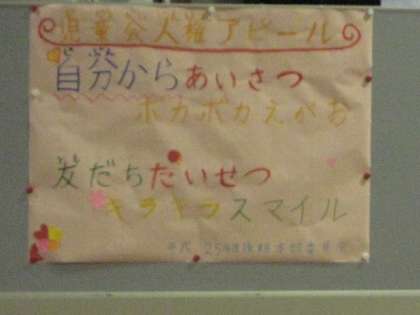 児童会人権アピール
自分からあいさつ
ポカポカえがお
友だちたいせつ
キラキラスマイル
平成25年度後期本部委員会